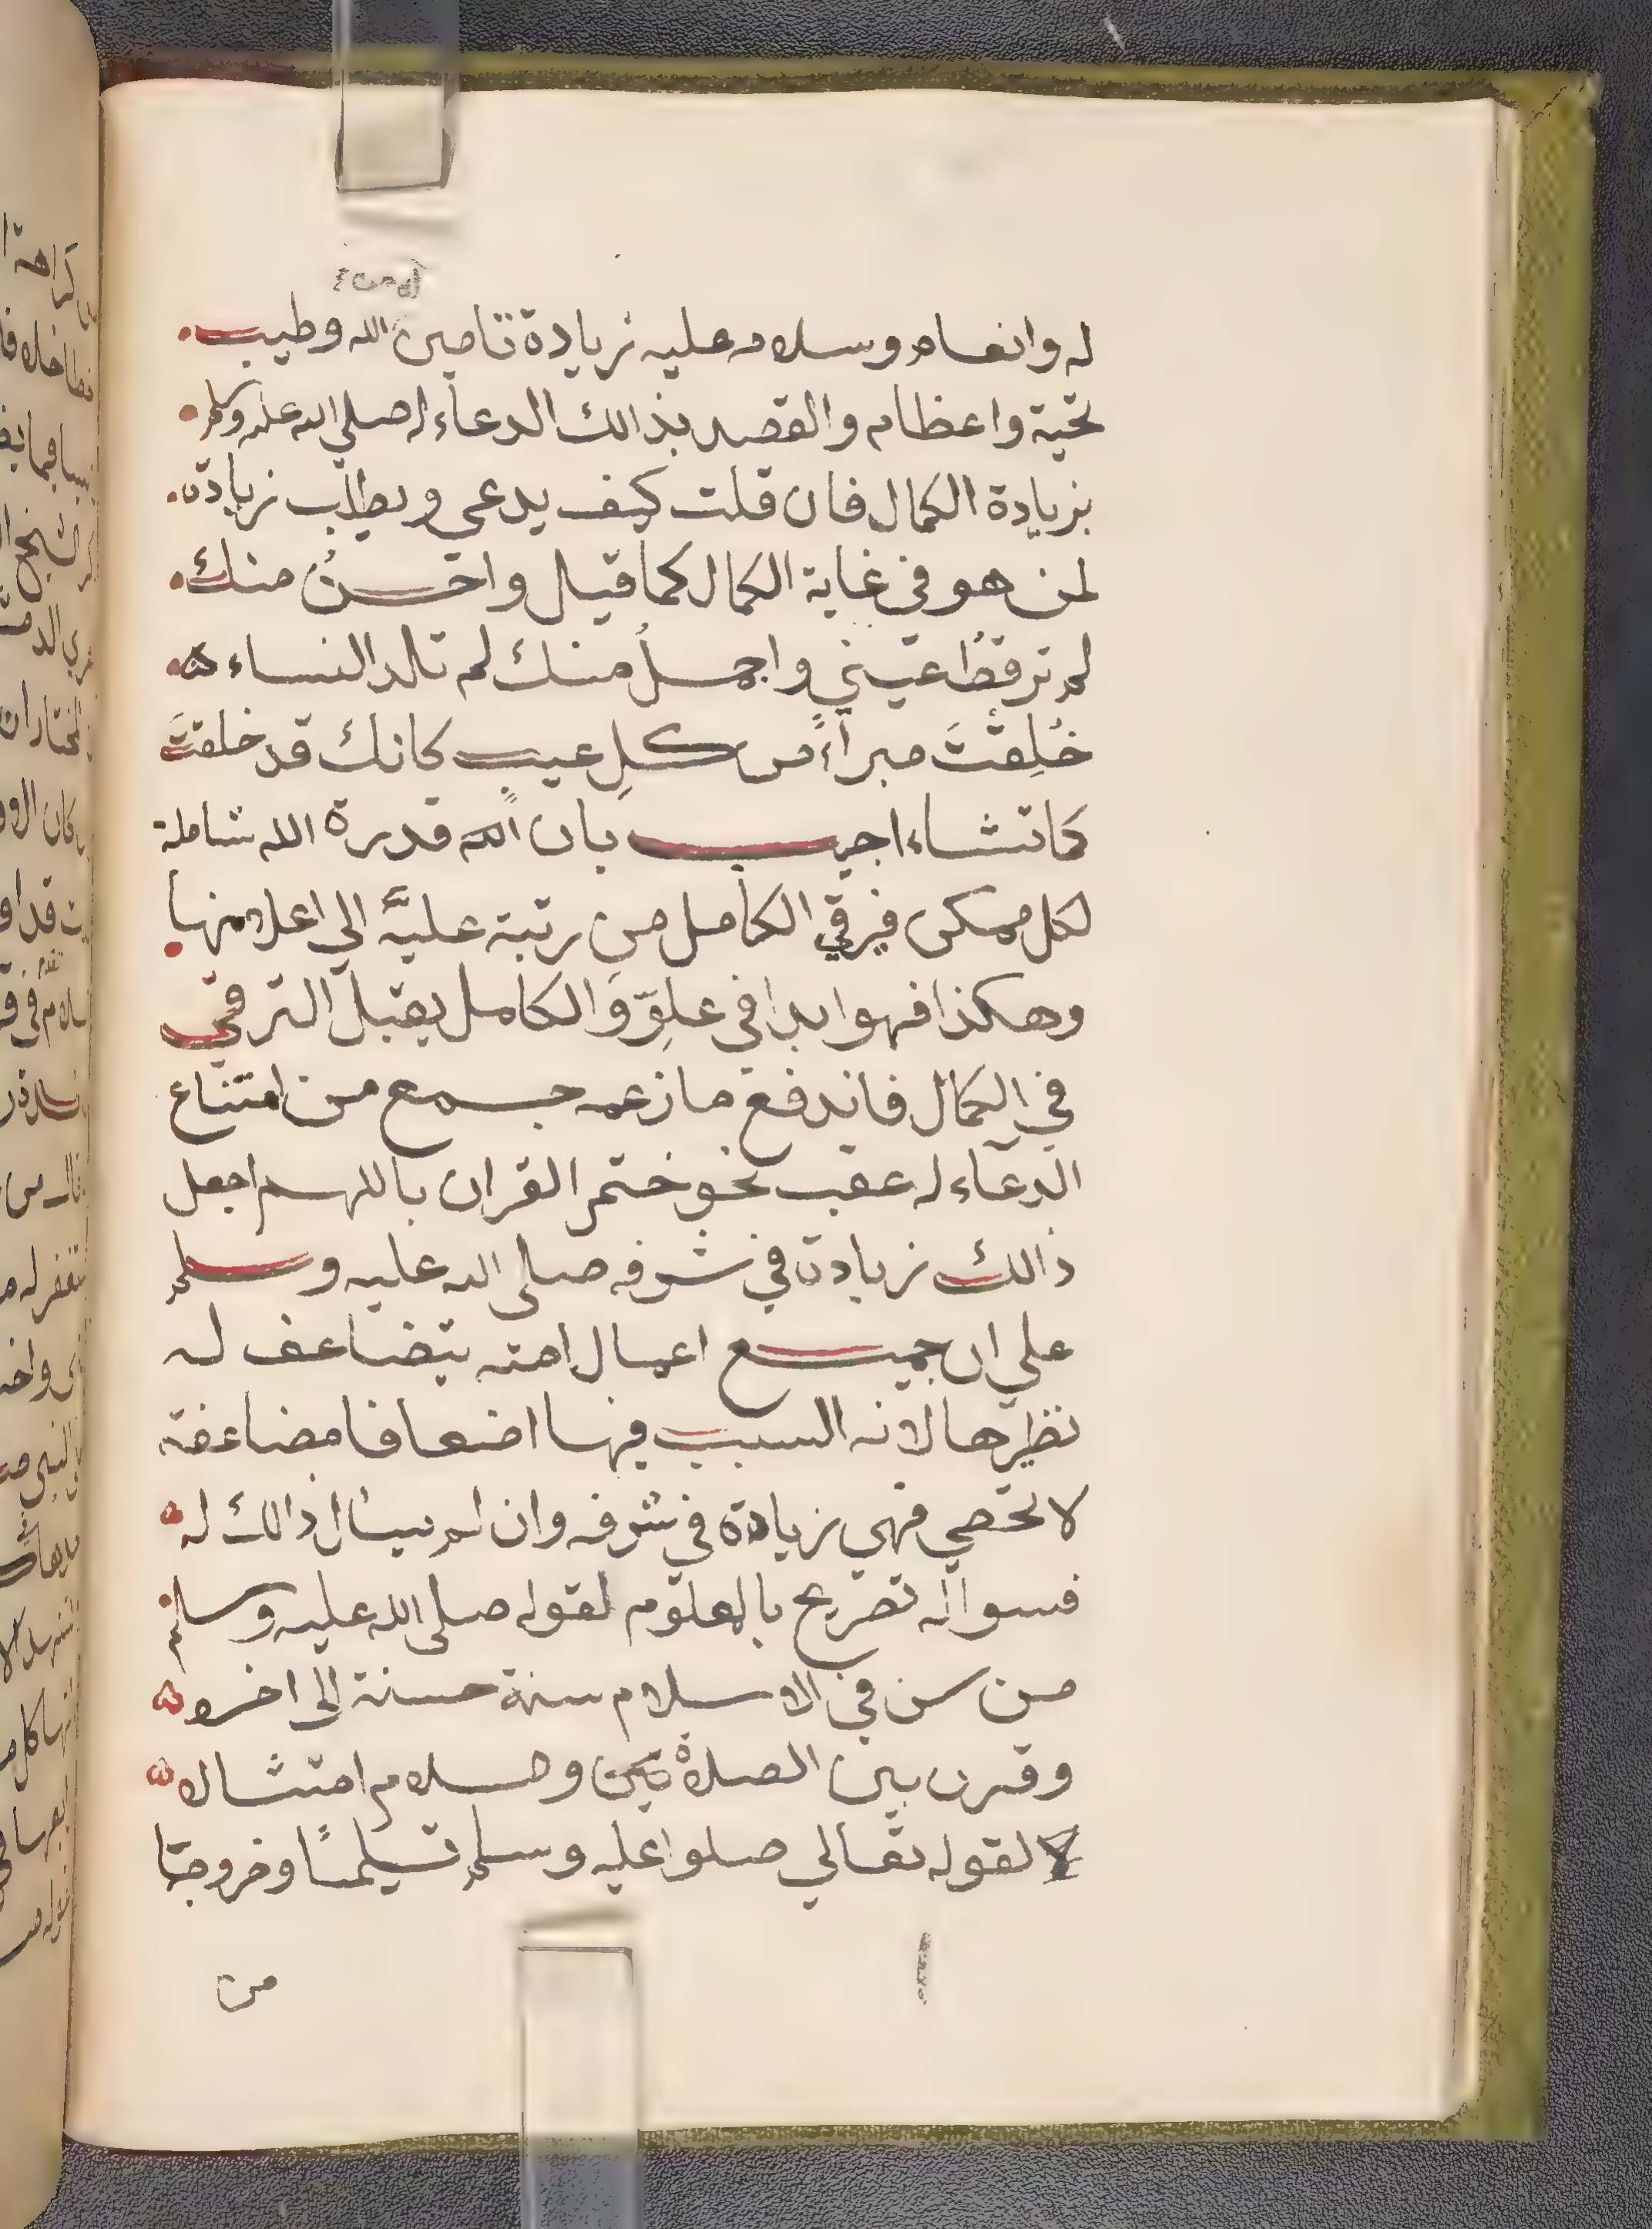 له وانعام وسلامه عليه زيادة تامين الله وطيب
تحية واعظام والقصد بذالك الدعاء له صلي الله عليه وسلم
بزيادة الكمال فان قلت كيف يدعي ويطلب زيادة
لمن هو في غاية الكمال كما قيل واحسنُ منك
لم تر قطُ عيني واجملُ منك لم تلد النساء
خُلِقتَ مبرأً من كلِ عيب كانك قد خلقتَ
كما تشاء اجيب بان قدرة الله شاملة
لكل ممكن فيرقي الكامل من رتبة عليَّه الي اعلا منها
وهكذا فهو ابدا في علوّ والكامل يقبل الترقي
في الكمال فاندفع ما زعمه جمع من امتناع
الدعاء له عقب نحو ختم القران باللهم اجعل
ذالك زيادة في شرفه صلي الله عليه وسلم
علي ان جميع اعمال امته يتضاعف له
نظيرها لانه السبب فيها اضعافا مضاعفة
لا تحصي فهي زيادة في شرفه وان لم يسال ذالك له
فسواله تصريح بالمعلوم لقوله صلي الله عليه وسلم
من سن في الاسلام سنة حسنة الي اخره
وقرن بين الصلاة وسلام امتثالا
لقوله تعالي صلوا عليه وسلم تسليمًا وخروجا
من